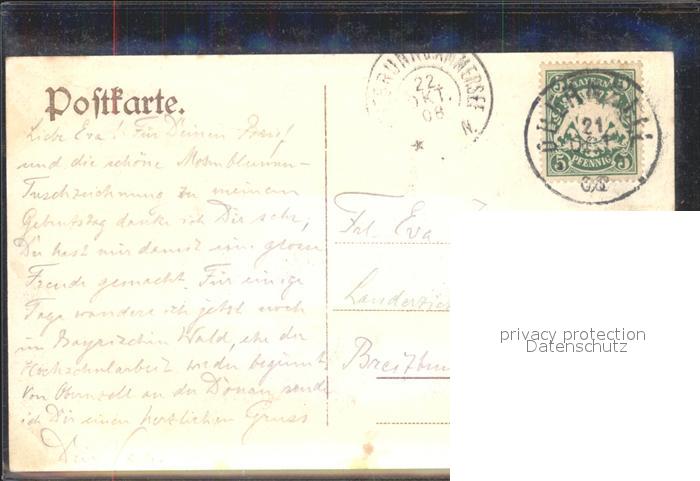 Postkarte.
Liebe Eva! Für Deinen
und die schöne Mohnblumen-
Tuschzeichnung zu meinem
Geburtstag danke ich Dir sehr,
Du hast mir damit eine grosse
Freude gemacht. Für einige
Tage wandere ich jetzt noch
im Bayrischen Wald, ehe die
Hochschularbeit wieder beginnt.
Von Obernzell an der Donau sende
ich Dir einen herzlichen Gruss
Dein
AMMERSEE
22
OKT.
08
N.
BAYERN
5 5
PFENNIG
OBERNZELL
21
OKT.
08
Frl. Eva
Landerzie
Breitbrunn
privacy protection
Datenschutz